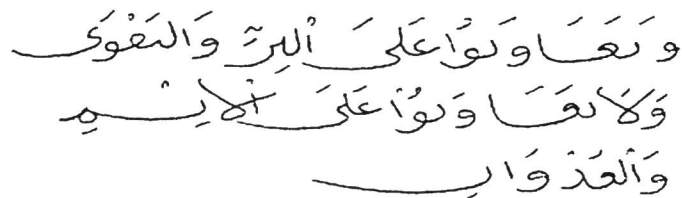 وَتَعَاوَنُوا عَلَى ٱلبِرِّ وَالتَقْوَى
وَلَا تَعَاوَنُوا عَلَى ٱلْإِثْمِ
وَٱلعُدْوَانِ